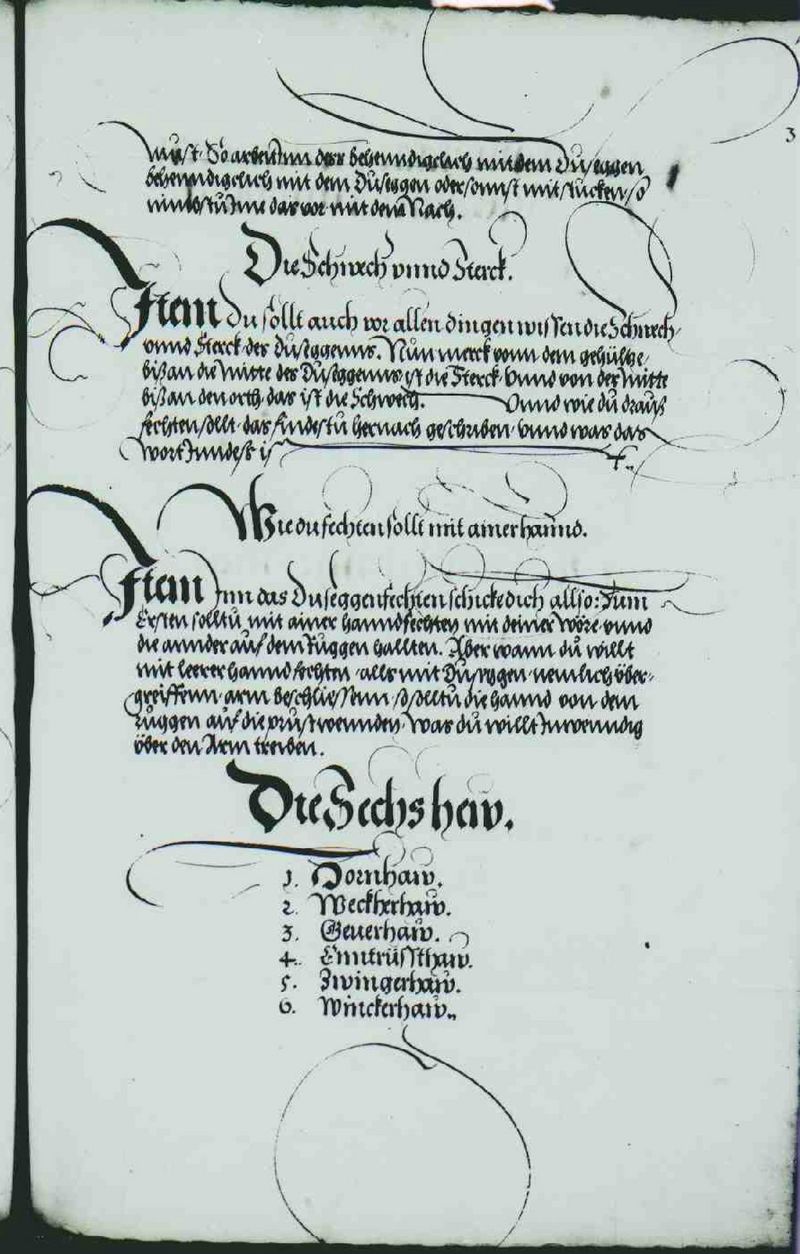 3
wirst. So arbeit Inn dess behenndigclich mit dem Duseggen
behenndigclich mit dem Duseggen oder sonnst mit stucken, so
nimbstu Ime das vor mit dem Nach.
Die Schwech vnnd Sterck.
Item du sollt auch vor allen dingen wissen die Schwech,
vnnd Sterck des Duseggenns. Nun merck vonn dem gehültze,
biß an die Mitte des Duseggenns, ist die Sterck, Vnnd von der Mitte
biß an den orth, das ist die Schwech. Vnnd wie du drauß
fechten sollt, das findestu hernach geschriben, vnnd was das
wort Inndeß is 4.
Wie du fechten sollt mit ainer hannd.
Item Inn das Duseggenfechten schicke dich allso: Zum
Ersten solltu mit ainer hannd fechten mit deiner Wöre, vnnd
die annder auf dem Ruggen hallten. Aber wann du willt
mit leerer hannd fechten, alls mit Duseggen, nemlich über-
greiffenn, arm beschliessenn, so solltu die hannd von dem
Ruggen auf die prust wennden, was du willt Inwenndig
über den Arm treiben.
Die Sechs hew.
1. Dornhaw.
2. Weckherhaw.
3. Geuerhaw.
4. Enntrüssthaw.
5. Zwingerhaw.
6. Winckerhaw.